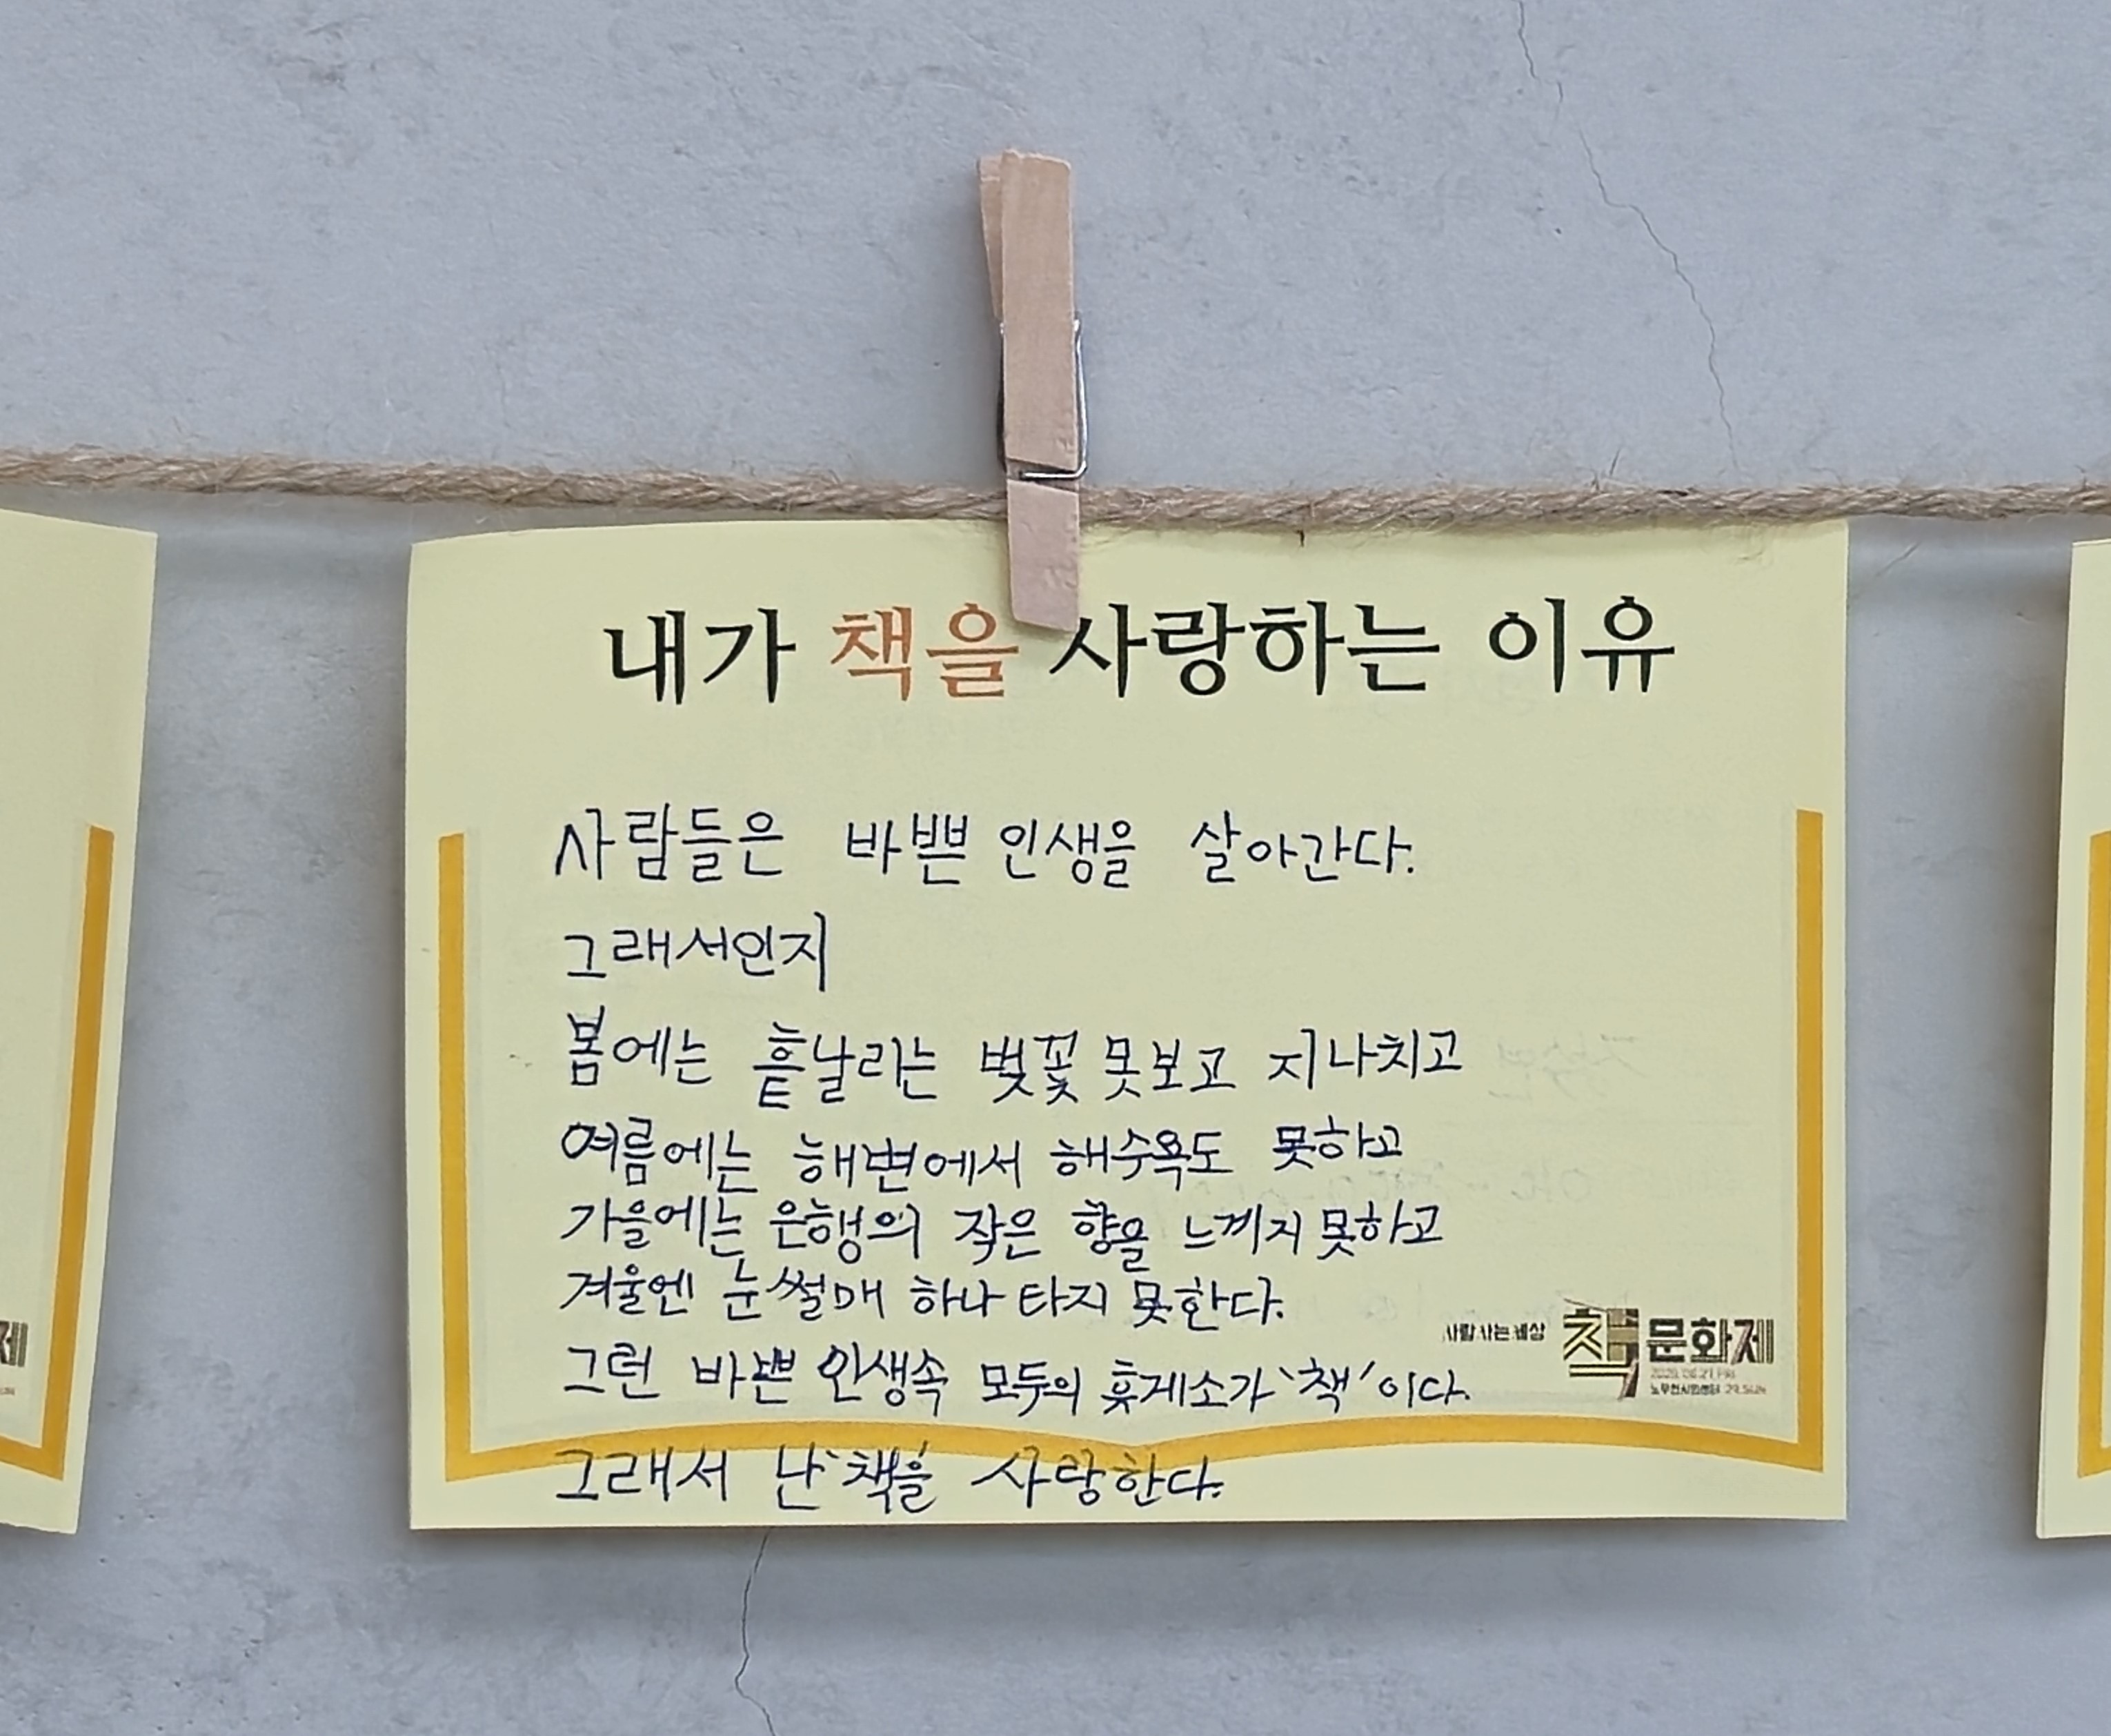 내가 책을 사랑하는 이유
사람들은 바쁜 인생을 살아간다.
그래서인지
봄에는 흩날리는 벚꽃 못보고 지나치고
여름에는 해변에서 해수욕도 못하고
가을에는 은행의 작은 향을 느끼지 못하고
겨울엔 눈썰매 하나 타지 못한다.
그런 바쁜 인생속 모두의 휴게소가 '책' 이다.
그래서 난 '책'을 사랑한다.
사람 사는 세상 책 문화제
제